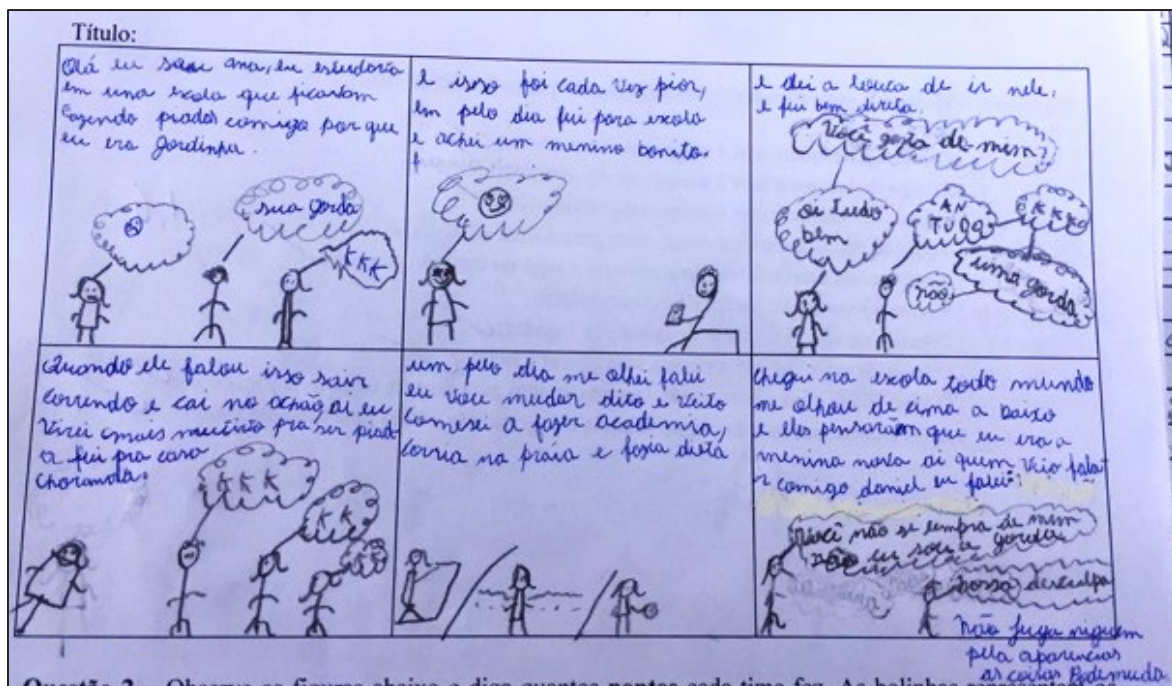 Título:
Olá eu sou ana, eu estudava
em uma escola que ficavam
fazendo piadas comigo por que
eu era gordinha.
sua gorda
KKK
e isso foi cada vez pior,
um pelo dia fui para escola
e achei um menino bonito.
e dei a louca de ir nele,
e fui bem direta.
Você gosta de mim?
oi tudo
bem
AN
TUDO
KKK
não
uma gorda
Quando ele falou isso sair
correndo e cai no achão, ai eu
virei mais mutivo pra ser piad
a fui pra casa
chorando.
KKK
KK
um pelo dia me olhei falei
eu vou mudar dito e feito
comesei a fazer academia,
corria na praia e fazia dieta
cheguei na escola todo mundo
me olhou de cima a baixo
e eles pensaram que eu era a
menina nova ai quem veio fala
r comigo daniel eu falei:
você não se lempra de mim
eu sou a gorda
nossa desculpa
não juga niguem
pela aparencias
as coisas Podemuda
Questão 2 – Observe as figuras abaixo e diga quantos pontos cada time fez. As bolinhas